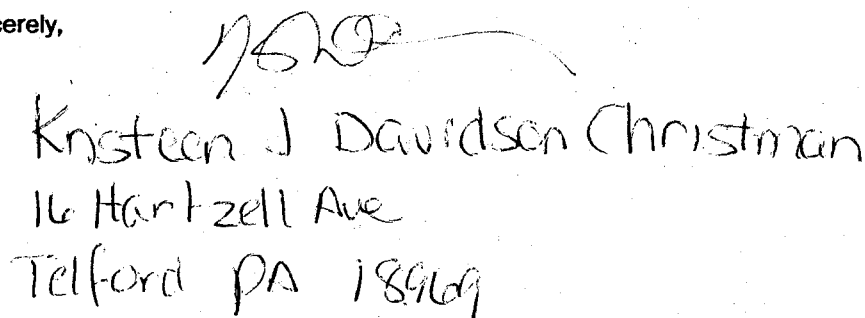 cerely,
Kristeen J Davidson Christman
16 Hartzell Ave
Telford PA 18969